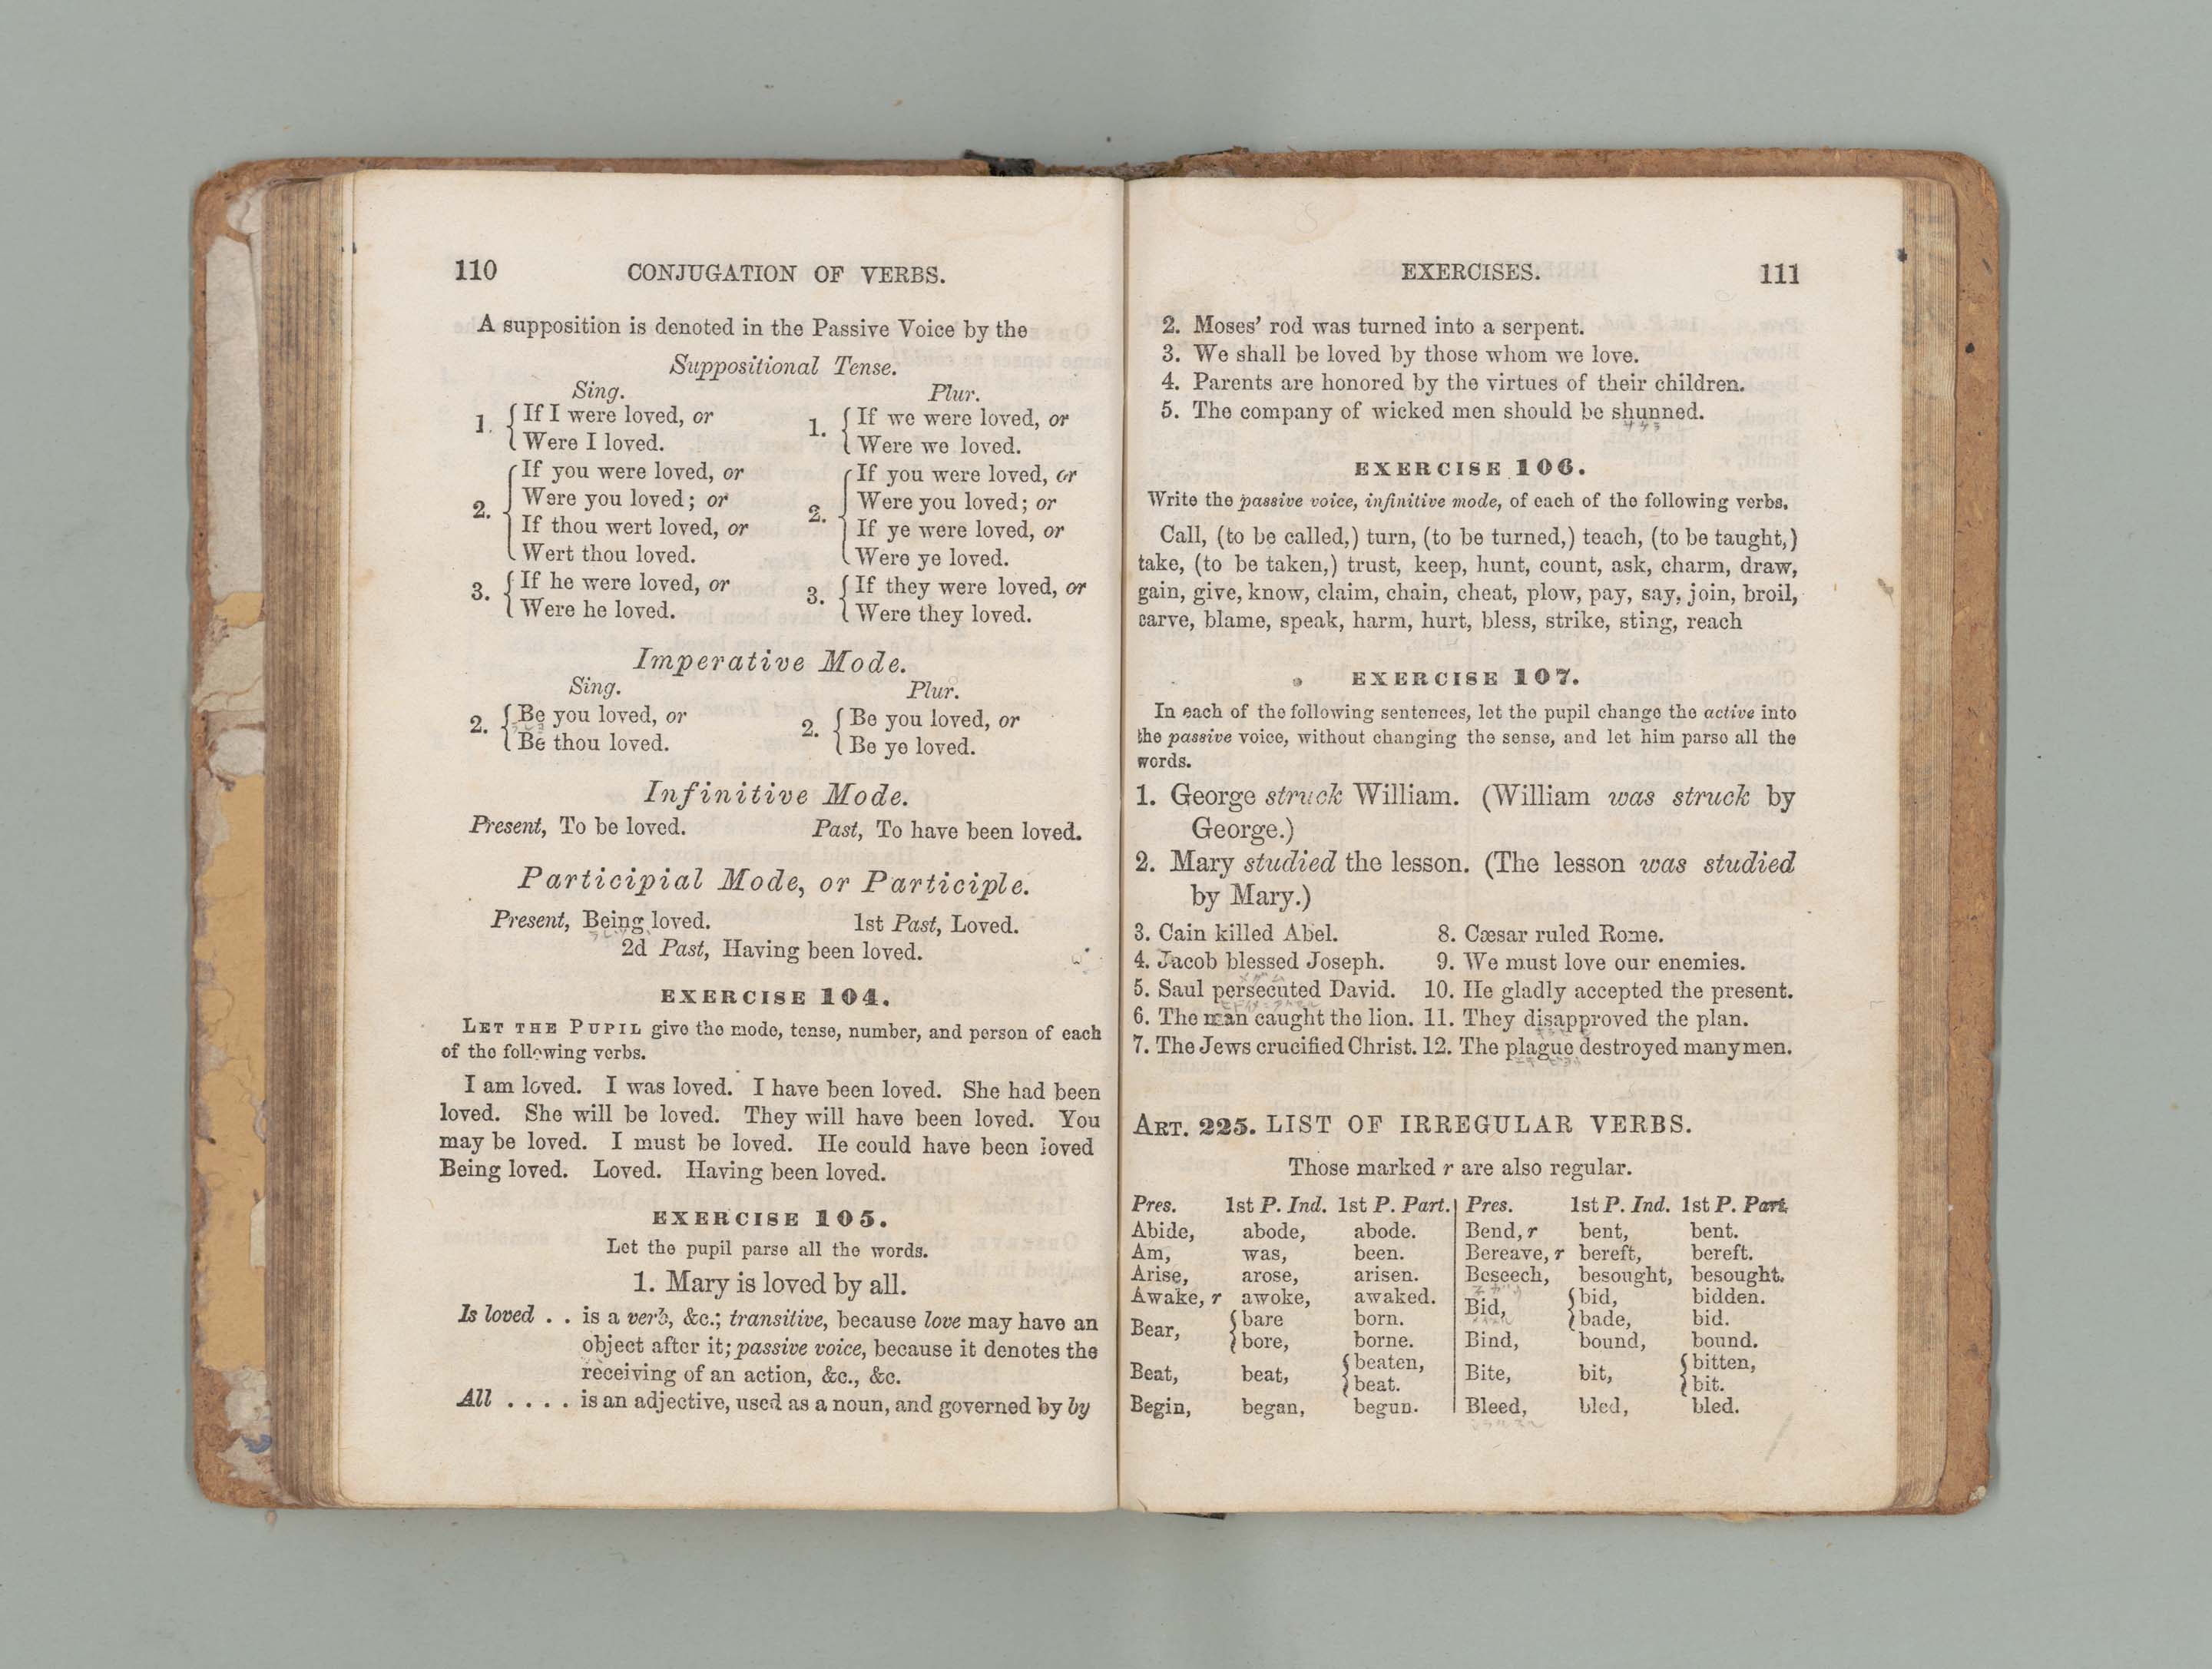 110 CONJUGATION OF VERBS.
A supposition is denoted in the Passive Voice by the
Suppositional Tense.
Sing. Plur.
1. { If I were loved, or 1. { If we were loved, or
Were I loved. Were we loved.
2. { If you were loved, or 2. { If you were loved, or
Were you loved; or Were you loved; or
If thou wert loved, or If ye were loved, or
Wert thou loved. Were ye loved.
3. { If he were loved, or 3. { If they were loved, or
Were he loved. Were they loved.
Imperative Mode.
Sing. Plur.
2. { Be you loved, or 2. { Be you loved, or
Be thou loved. Be ye loved.
Infinitive Mode.
Present, To be loved. Past, To have been loved.
Participial Mode, or Participle.
Present, Being loved. 1st Past, Loved.
2d Past, Having been loved.
EXERCISE 104.
LET THE PUPIL give the mode, tense, number, and person of each
of the following verbs.
I am loved. I was loved. I have been loved. She had been
loved. She will be loved. They will have been loved. You
may be loved. I must be loved. He could have been loved
Being loved. Loved. Having been loved.
EXERCISE 105.
Let the pupil parse all the words.
1. Mary is loved by all.
Is loved . . is a verb, &c.; transitive, because love may have an
object after it; passive voice, because it denotes the
receiving of an action, &c., &c.
All . . . . is an adjective, used as a noun, and governed by by
EXERCISES. 111
2. Moses' rod was turned into a serpent.
3. We shall be loved by those whom we love.
4. Parents are honored by the virtues of their children.
5. The company of wicked men should be shunned.
EXERCISE 106.
Write the passive voice, infinitive mode, of each of the following verbs.
Call, (to be called,) turn, (to be turned,) teach, (to be taught,)
take, (to be taken,) trust, keep, hunt, count, ask, charm, draw,
gain, give, know, claim, chain, cheat, plow, pay, say, join, broil,
carve, blame, speak, harm, hurt, bless, strike, sting, reach
EXERCISE 107.
In each of the following sentences, let the pupil change the active into
the passive voice, without changing the sense, and let him parse all the
words.
1. George struck William. (William was struck by
George.)
2. Mary studied the lesson. (The lesson was studied
by Mary.)
3. Cain killed Abel. 8. Cæsar ruled Rome.
4. Jacob blessed Joseph. 9. We must love our enemies.
5. Saul persecuted David. 10. He gladly accepted the present.
6. The man caught the lion. 11. They disapproved the plan.
7. The Jews crucified Christ. 12. The plague destroyed many men.
ART. 225. LIST OF IRREGULAR VERBS.
Those marked r are also regular.
Pres. 1st P. Ind. 1st P. Part. Pres. 1st P. Ind. 1st P. Part.
Abide, abode, abode. Bend, r bent, bent.
Am, was, been. Bereave, r bereft, bereft.
Arise, arose, arisen. Beseech, besought, besought.
Awake, r awoke, awaked. Bid, { bid, bidden.
Bear, { bare born. bade, bid.
bore, borne. Bind, bound, bound.
Beat, beat, { beaten, Bite, bit, { bitten,
beat. bit.
Begin, began, begun. Bleed, bled, bled.